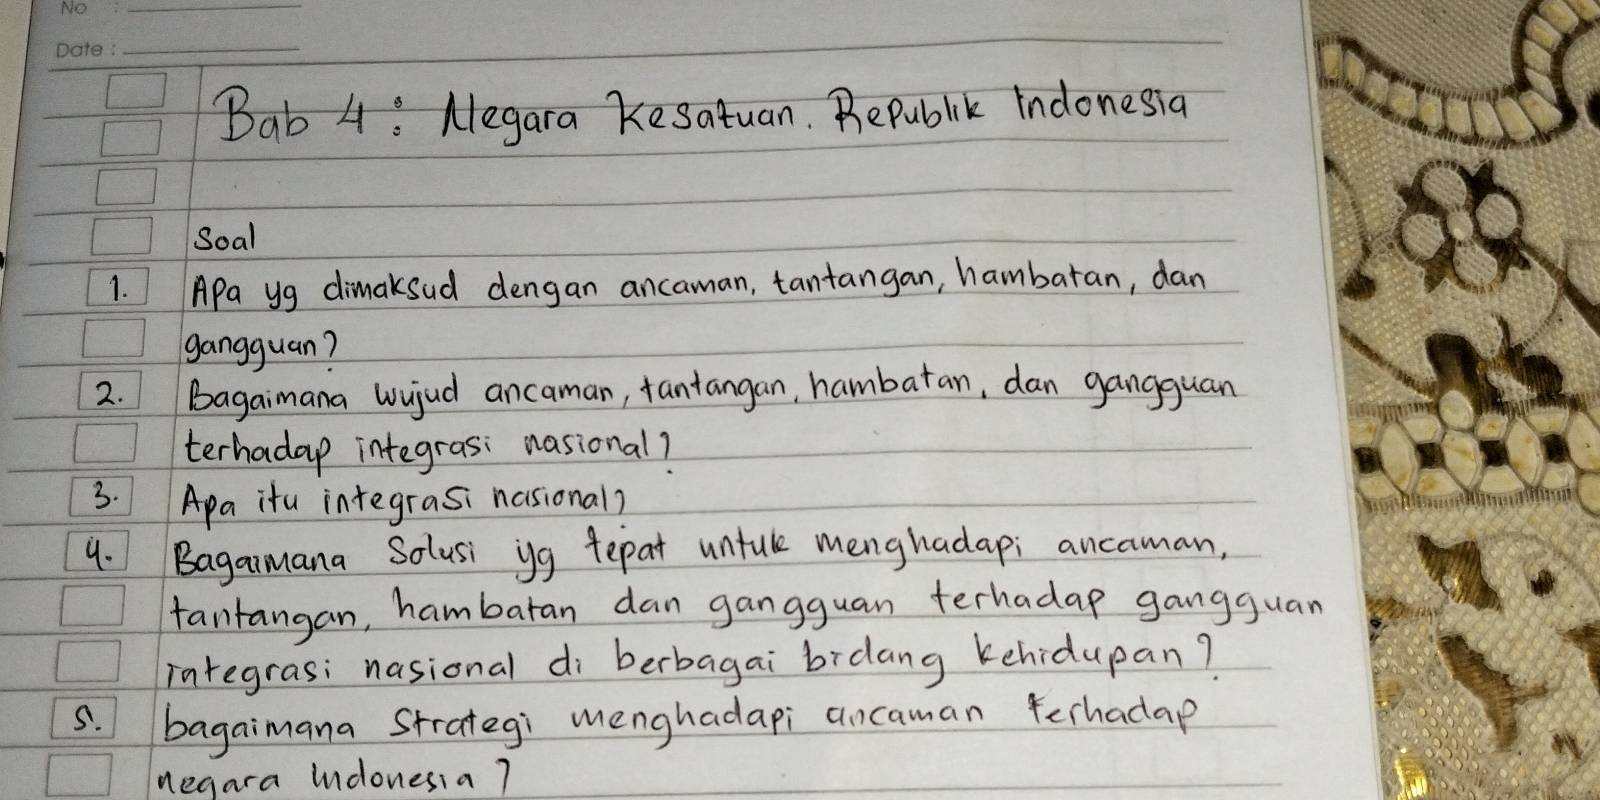 No :
Date :
Bab 4 : Negara Kesatuan. Republik Indonesia
Soal
1. Apa yg dimaksud dengan ancaman, tantangan, hambatan, dan
gangguan?
2. Bagaimana wujud ancaman, tantangan, hambatan, dan gangguan
terhadap integrasi nasional?
3. Apa itu integrasi nasional?
4. Bagaimana Solusi yg tepat untuk menghadapi ancaman,
tantangan, hambatan dan gangguan terhadap gangguan
integrasi nasional di berbagai bidang kehidupan?
5. bagaimana Strategi menghadapi ancaman terhadap
negara indonesia?